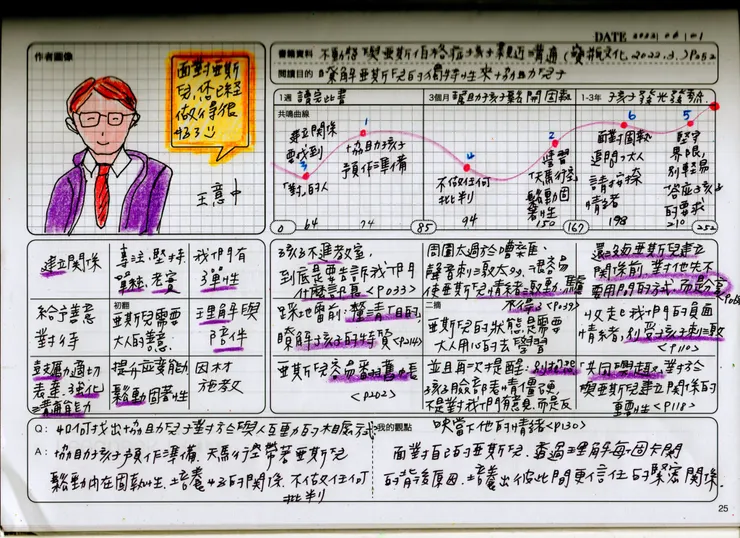 DATE 2022 / 06 / 01
作者圖像
面對亞斯
兒,您已經
做得很
好了
王意中
書籍資料 不動怒,與亞斯伯格症孩子親近溝通(寶瓶文化,2022.3.) P252
閱讀目的 了解亞斯兒的獨特性來協助兒子
1週 讀完此書
3個月 協助孩子鬆開固執
1-3年 孩子發光發熱
共鳴曲線
建立關係
要找到
「對」的人
3
1
協助孩子
預作準備
4
不做任何
批判
2
學習
天馬行空
鬆動固
著性
6
面對固執
退開,大人
請接採
情緒
5
堅守
界限,
別輕易
答應孩子
的要求
0 64 74 85 94 150 167 198 210 252
建立關係
專注、堅持
單純、老實
我們有
彈性
給予善意
對待
初翻
亞斯兒需要
大人的善意
理解與
陪伴
鼓勵適切
表達,強化
溝通能力
提升亞斯能
鬆動固著性
因材
施教
孩子不進教室,
到底是要告訴我們
什麼訊息<P033>
踩地雷前:釐清目的,
瞭解孩子的特質<P214>
亞斯兒容易翻舊帳
<P202>
周圍太過於嘈雜、
聲音刺激太多,很容易
使亞斯兒情緒激動,驚
<P039>
二摘
亞斯兒的狀態是需要
大人用心的去學習
並且再一次提醒:別把
孩子臉部表情僵硬,
不是對我們有意見,而是反
映當下他的情緒<P130>
還沒與亞斯兒建立
關係前,對他先不
要用問的方式,而是分享
收起我們的負面
情緒,別受孩子刺激
<P110>
「共同興趣」對於
與亞斯兒建立關係的
重要性<P118>
Q: 如何找出協助兒子對於與人互動的相處模式
A: 協助孩子預作準備,天馬行空帶著亞斯兒
鬆動內在固執性,培養好的關係,不做任何
批判
我的觀點
面對自己的亞斯兒,透過理解每個卡關
的背後原因,培養出彼此間更信任的緊密關係.
25